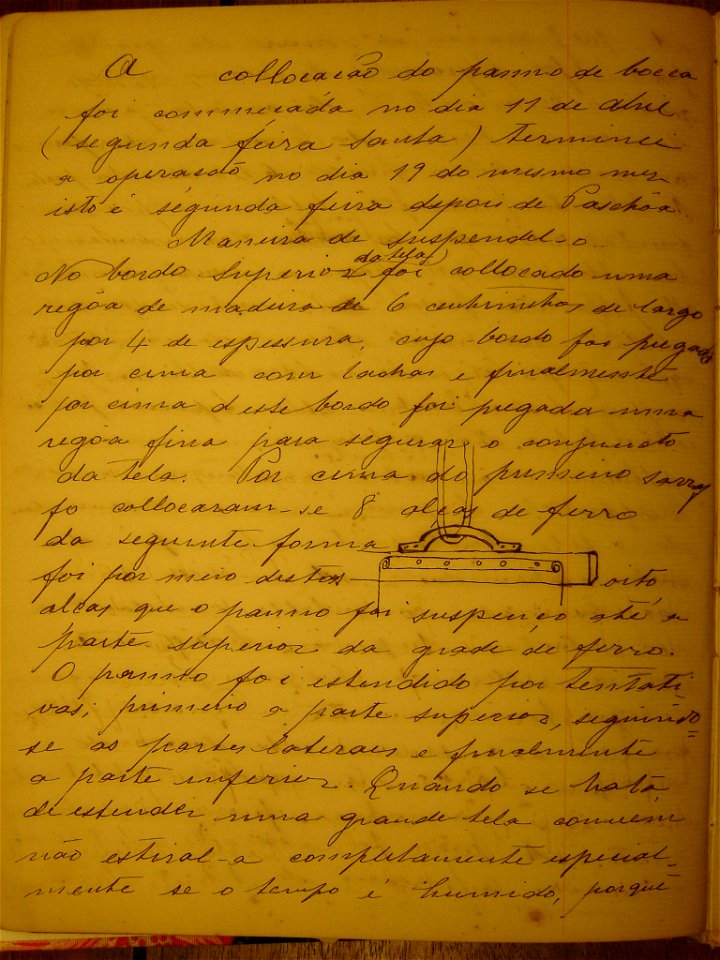 A collocacão do panno de bocca
foi commecada no dia 11 de Abril
(segunda feira Santa) terminei
a operacão no dia 19 do mesmo mez
isto é segunda feira depois de Paschôa.
Maneira de suspendel-o.
da tela
No bordo superior foi collocado uma
regôa de madeira de 6 centimetros de largo
por 4 de espessura, cujo bordo foi pregado
por cima com tachas e finalmente
por cima d este bordo foi pregada uma
regôa fina para segurar o conjuncto
da tela. Por cima do primeiro sarra
fo collocaram-se 8 alças de ferro
da seguinte forma
foi por meio destas oito
alças que o panno foi suspenço até a
parte superior da grade de ferro.
O panno foi estendido por tentati-
vas, primeiro a parte superior, seguindo=
se as partes lateraes e finalmente
a parte inferior. Quando se trata
de estender uma grande tela convem
não estiral-a completamente especial-
mente se o tempo é humido, porque